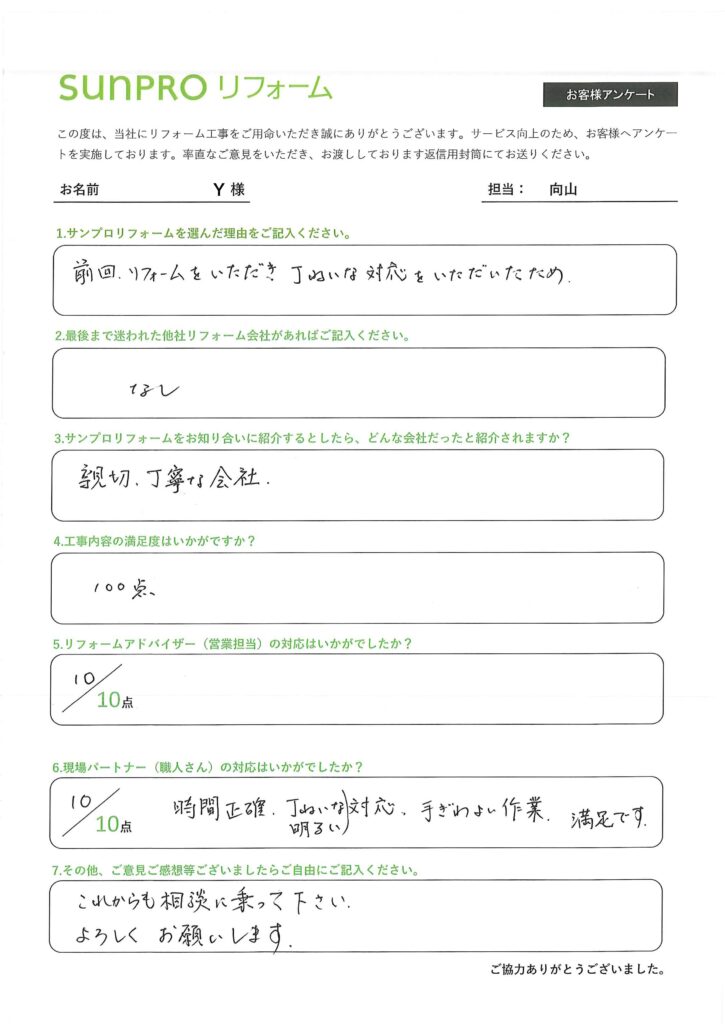 sunPRO リフォーム
お客様アンケート
この度は、当社にリフォーム工事をご用命いただき誠にありがとうございます。サービス向上のため、お客様へアンケー
トを実施しております。率直なご意見をいただき、お渡ししております返信用封筒にてお送りください。
お名前 Y 様 担当： 向山
1.サンプロリフォームを選んだ理由をご記入ください。
前回、リフォームをいただき 丁ねいな 対応をいただいたため.
2.最後まで迷われた他社リフォーム会社があればご記入ください。
なし
3.サンプロリフォームをお知り合いに紹介するとしたら、どんな会社だったと紹介されますか？
親切、丁寧な会社.
4.工事内容の満足度はいかがですか？
100点、
5.リフォームアドバイザー（営業担当）の対応はいかがでしたか？
10/10点
6.現場パートナー（職人さん）の対応はいかがでしたか？
10/10点 時間正確、丁ねいな)対応、手ぎわよい作業. 満足です.
明るい
7.その他、ご意見ご感想等ございましたらご自由にご記入ください。
これからも相談に乗って下さい.
よろしく お願いします.
ご協力ありがとうございました。